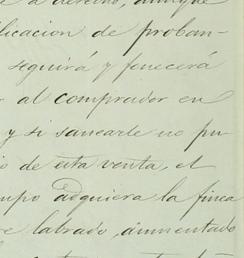 a derecho, aunque
ificacion de proban-
seguirá y fenecerá
al comprador en
y si sanearle no pu-
io de esta venta, el
mpo adquiera la finca
re labrado, aumentado